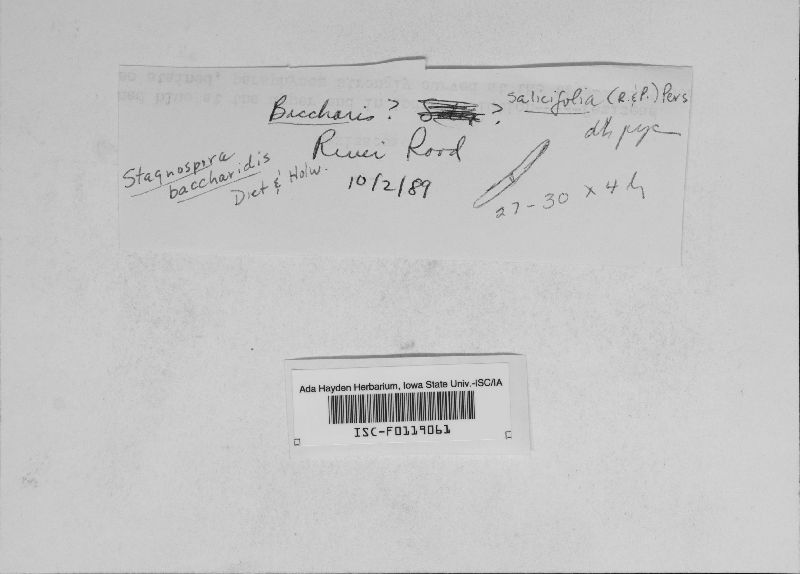 Baccharis? ? salicifolia (R.&P.) Pers
River Road
Stagnospora
baccharidis
Diet & Holw.
10/2/89
27-30 x 4
Ada Hayden Herbarium, Iowa State Univ.-ISC/IA
ISC-F0119061